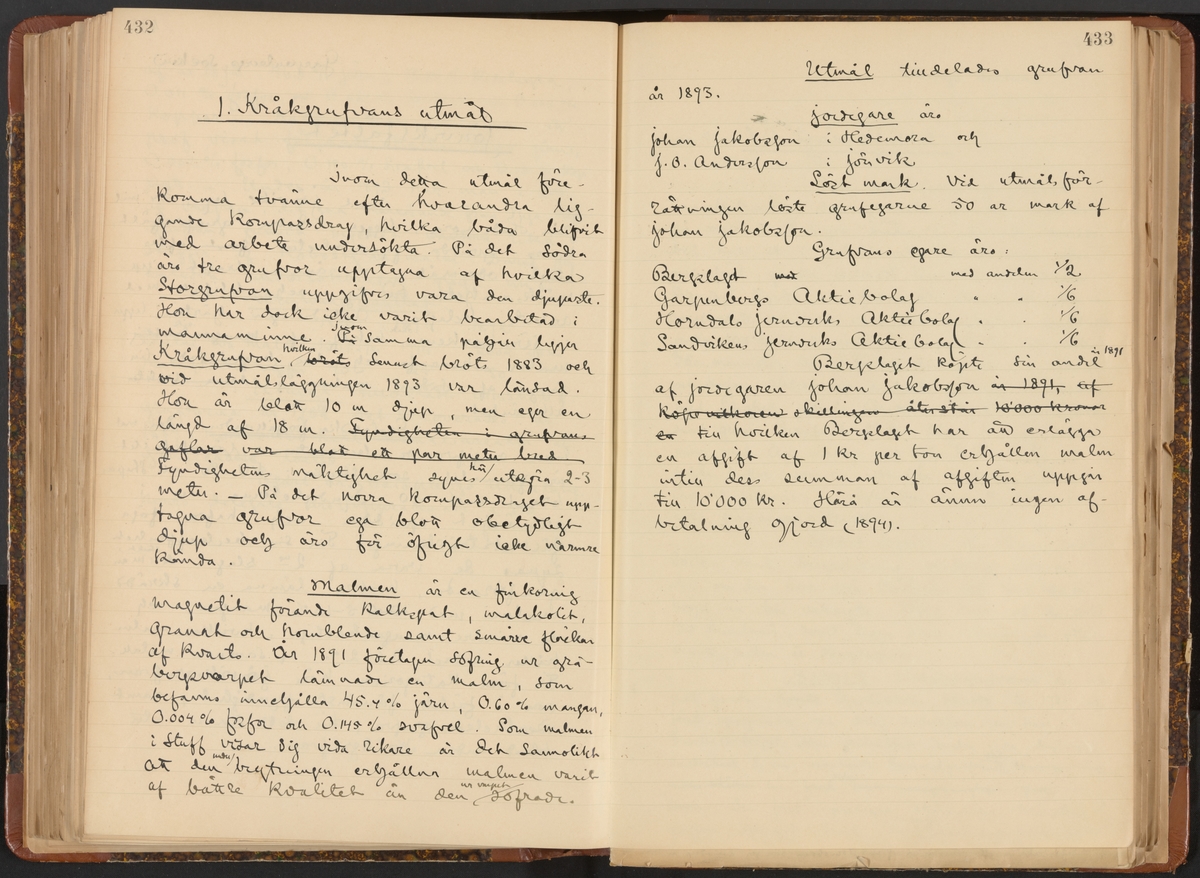 432
1. Kråkgrufvans utmål
Inom detta utmål före-
komma tvänne efter hvarandra lig-
gande kompassdrag, hvilka båda blifvit
med arbete undersökta. På det södra
äro tre grufvor upptagna af hvilka
Storgrufvan uppgifves vara den djupaste.
Hon har dock icke varit bearbetad i
mannaminne. På inom samma ligger
Kråkgrufvan, hvilken bröts senast bröts 1883 och
vid utmålsläggningen 1893 var länsad.
Hon är blott 10 m djup, men eger en
längd af 18 m. Fyndigheten i grufvans
gaflar var blott ett par meter bred
Fyndighetens mäktighet synes här utgöra 2-3
meter. — På det norra kompassdraget upp-
tagna grufvor ega blott obetydligt
djup och äro för öfrigt icke närmre
kända.
Malmen är en finkornig
magnetit förande kalkspat, malakolit,
granat och hornblende samt smärre fläckar
af kvarts. År 1891 företagen sofring ur grå-
bergsvarpet lämnade en malm, som
befanns innehålla 45.4 % järn, 0.60 % mangan,
0.004 % fosfor och 0.145 % svafvel. Som malmen
i stuff visar sig vida rikare är det sannolikt
att den under brytningen erhållna malmen varit
af bättre kvalitet än den ur varpet sofrade.
433
Utmål tilldelades grufvan
år 1893.
Jordegare äro
Johan Jakobsson i Hedemora och
J. O. Andersson i Jönvik
Löst mark. Vid utmålsför-
rättningen löste grufegarne 50 ar mark af
Johan Jakobsson.
Grufvans egare äro:
Bergslaget med med andelen 1/2
Garpenbergs Aktiebolag " " 1/6
Horndals Jernverks Aktiebolag " " 1/6
Sandvikens Jernverks Aktiebolag " " 1/6
Bergslaget köpte sin andel år 1891
af jordegaren Johan Jakobsson år 1891, af
köpevilkoren skillingen återstår 10'000 kronor
en till hvilken Bergslaget har att erlägga
en afgift af 1 kr per ton erhållen malm
intill dess summan af afgiften uppgår
till 10'000 kr. Härå är ännu ingen af-
betalning gjord (1894).